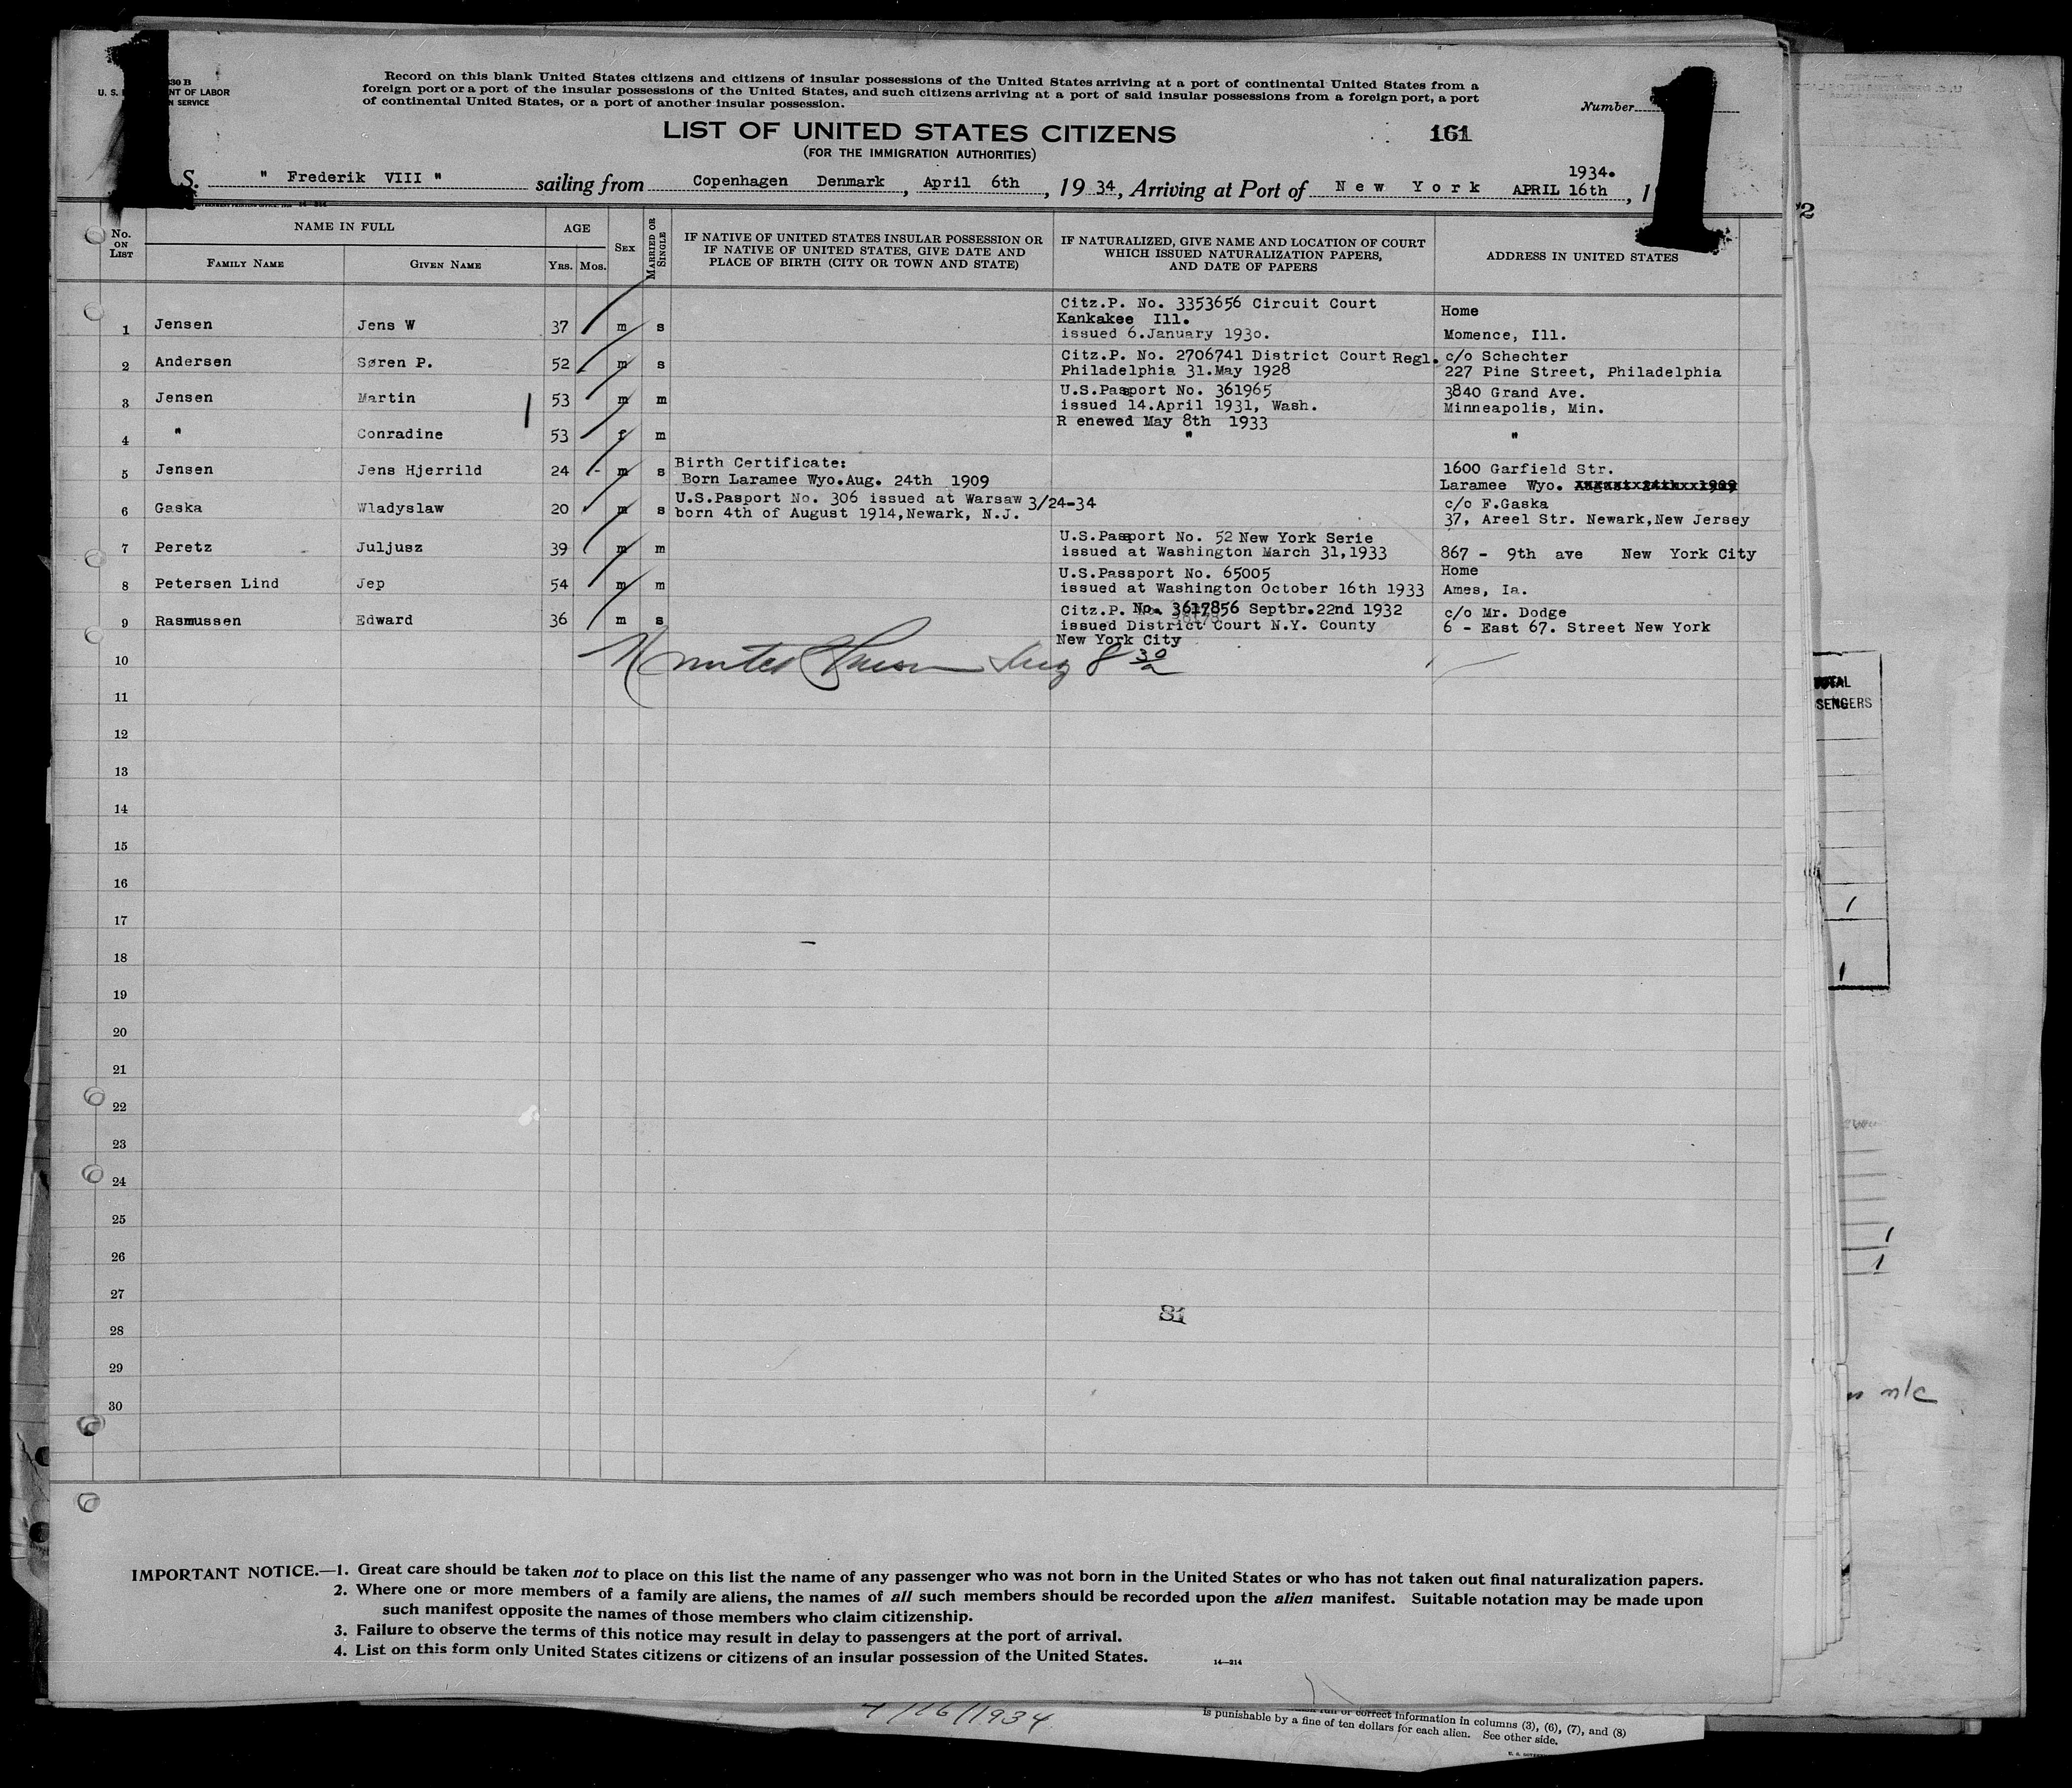 1 1
30 B
U. S. NT OF LABOR
N SERVICE
Record on this blank United States citizens and citizens of insular possessions of the United States arriving at a port of continental United States from a
foreign port or a port of the insular possessions of the United States, and such citizens arriving at a port of said insular possessions from a foreign port, a port
of continental United States, or a port of another insular possession.
Number
LIST OF UNITED STATES CITIZENS 161
(FOR THE IMMIGRATION AUTHORITIES)
1934.
S. " Frederik VIII " sailing from Copenhagen Denmark, April 6th, 19 34, Arriving at Port of New York APRIL 16th, 1
2
No. ON LIST NAME IN FULL AGE SEX MARRIED OR SINGLE IF NATIVE OF UNITED STATES INSULAR POSSESSION OR IF NATIVE OF UNITED STATES, GIVE DATE AND PLACE OF BIRTH (CITY OR TOWN AND STATE) IF NATURALIZED, GIVE NAME AND LOCATION OF COURT WHICH ISSUED NATURALIZATION PAPERS, AND DATE OF PAPERS ADDRESS IN UNITED STATES
FAMILY NAME GIVEN NAME YRS. MOS.
Citz.P. No. 3353656 Circuit Court Home
Kankakee Ill.
1 Jensen Jens W 37 m s issued 6.January 1930. Momence, Ill.
2 Andersen Søren P. 52 m s Citz.P. No. 2706741 District Court Regl. c/o Schechter
Philadelphia 31.May 1928 227 Pine Street, Philadelphia
3 Jensen Martin 53 m m U.S.Passport No. 361965 3840 Grand Ave.
issued 14.April 1931, Wash. Minneapolis, Min.
R enewed May 8th 1933
4 " Conradine 53 f m " "
5 Jensen Jens Hjerrild 24 - m s Birth Certificate: 1600 Garfield Str.
Born Laramee Wyo.Aug. 24th 1909 Laramee Wyo. August 24th 1909
6 Gaska Wladyslaw 20 m s U.S.Pasport No. 306 issued at Warsaw 3/24-34 c/o F.Gaska
born 4th of August 1914, Newark, N.J. 37, Areel Str. Newark,New Jersey
7 Peretz Juljusz 39 m m U.S.Passport No. 52 New York Serie
issued at Washington March 31,1933 867 - 9th ave New York City
8 Petersen Lind Jep 54 m m U.S.Passport No. 65005 Home
issued at Washington October 16th 1933 Ames, Ia.
9 Rasmussen Edward 36 m s Citz.P. No. 3617856 Septbr.22nd 1932 c/o Mr. Dodge
issued District Court N.Y. County 6 - East 67. Street New York
New York City
10
11
12
13
14
15
16
17
18
19
20
21
22
23
24
25
26
27
81
28
29
30
TOTAL
SENGERS
n/c
IMPORTANT NOTICE.—1. Great care should be taken not to place on this list the name of any passenger who was not born in the United States or who has not taken out final naturalization papers.
2. Where one or more members of a family are aliens, the names of all such members should be recorded upon the alien manifest. Suitable notation may be made upon
such manifest opposite the names of those members who claim citizenship.
3. Failure to observe the terms of this notice may result in delay to passengers at the port of arrival.
4. List on this form only United States citizens or citizens of an insular possession of the United States.
14—214
4/16/1934
or correct information in columns (3), (6), (7), and (8)
is punishable by a fine of ten dollars for each alien. See other side.